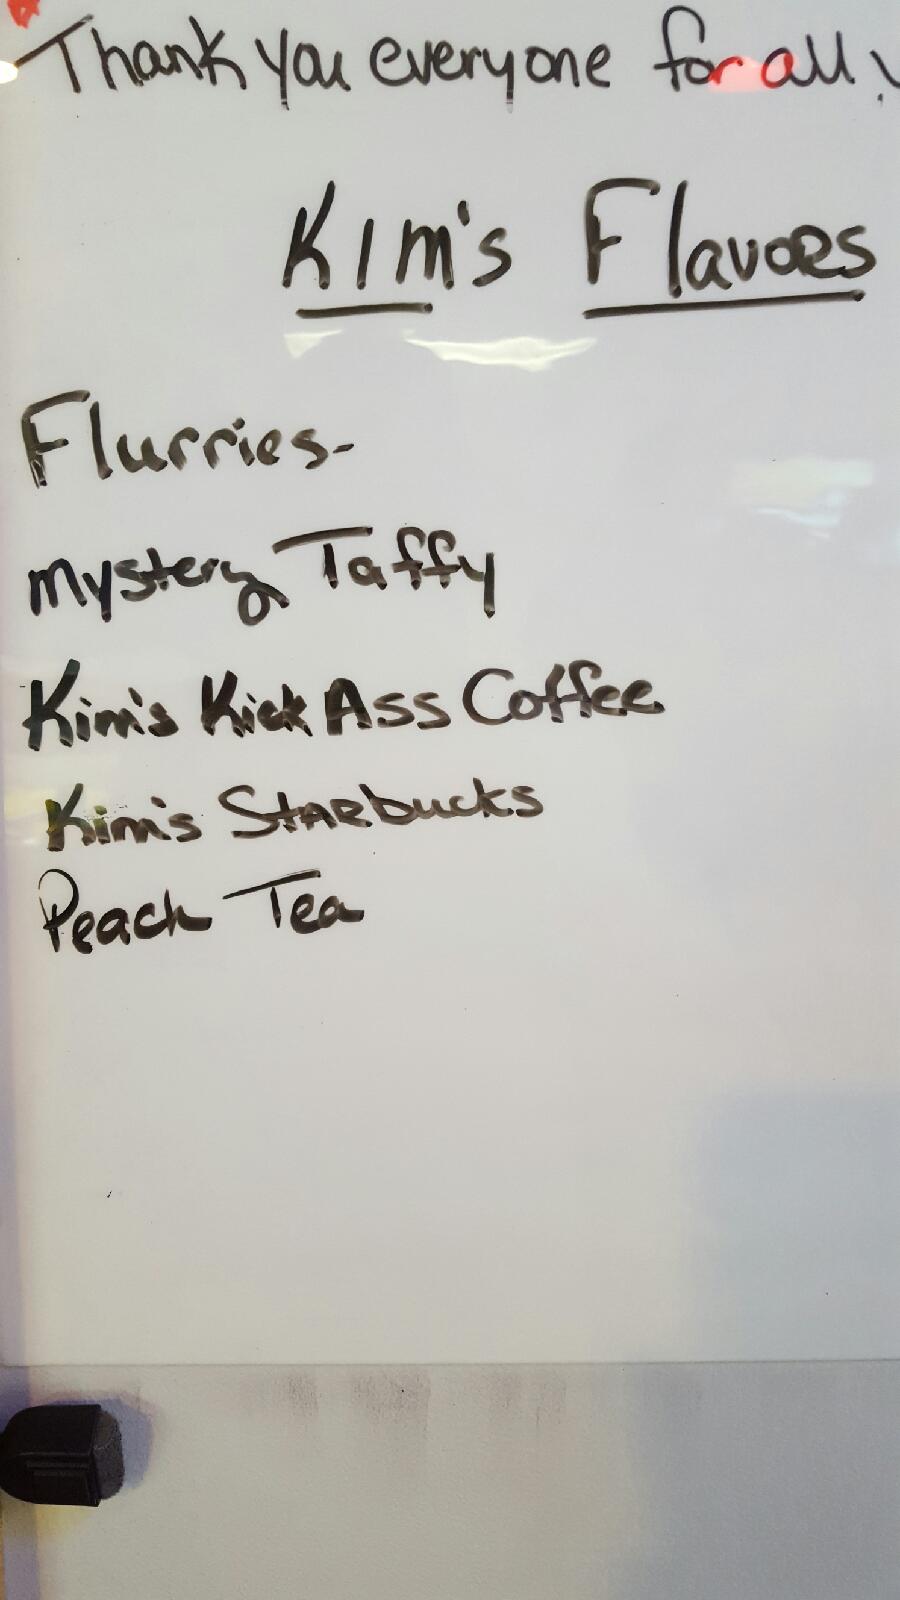 Thank you everyone for all
Kim's Flavors
Flurries-
Mystery Taffy
Kim's Kick Ass Coffee
Kim's Starbucks
Peach Tea